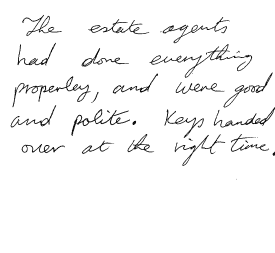 The estate agents
had done everything
properley, and were good
and polite. Keys handed
over at the right time.